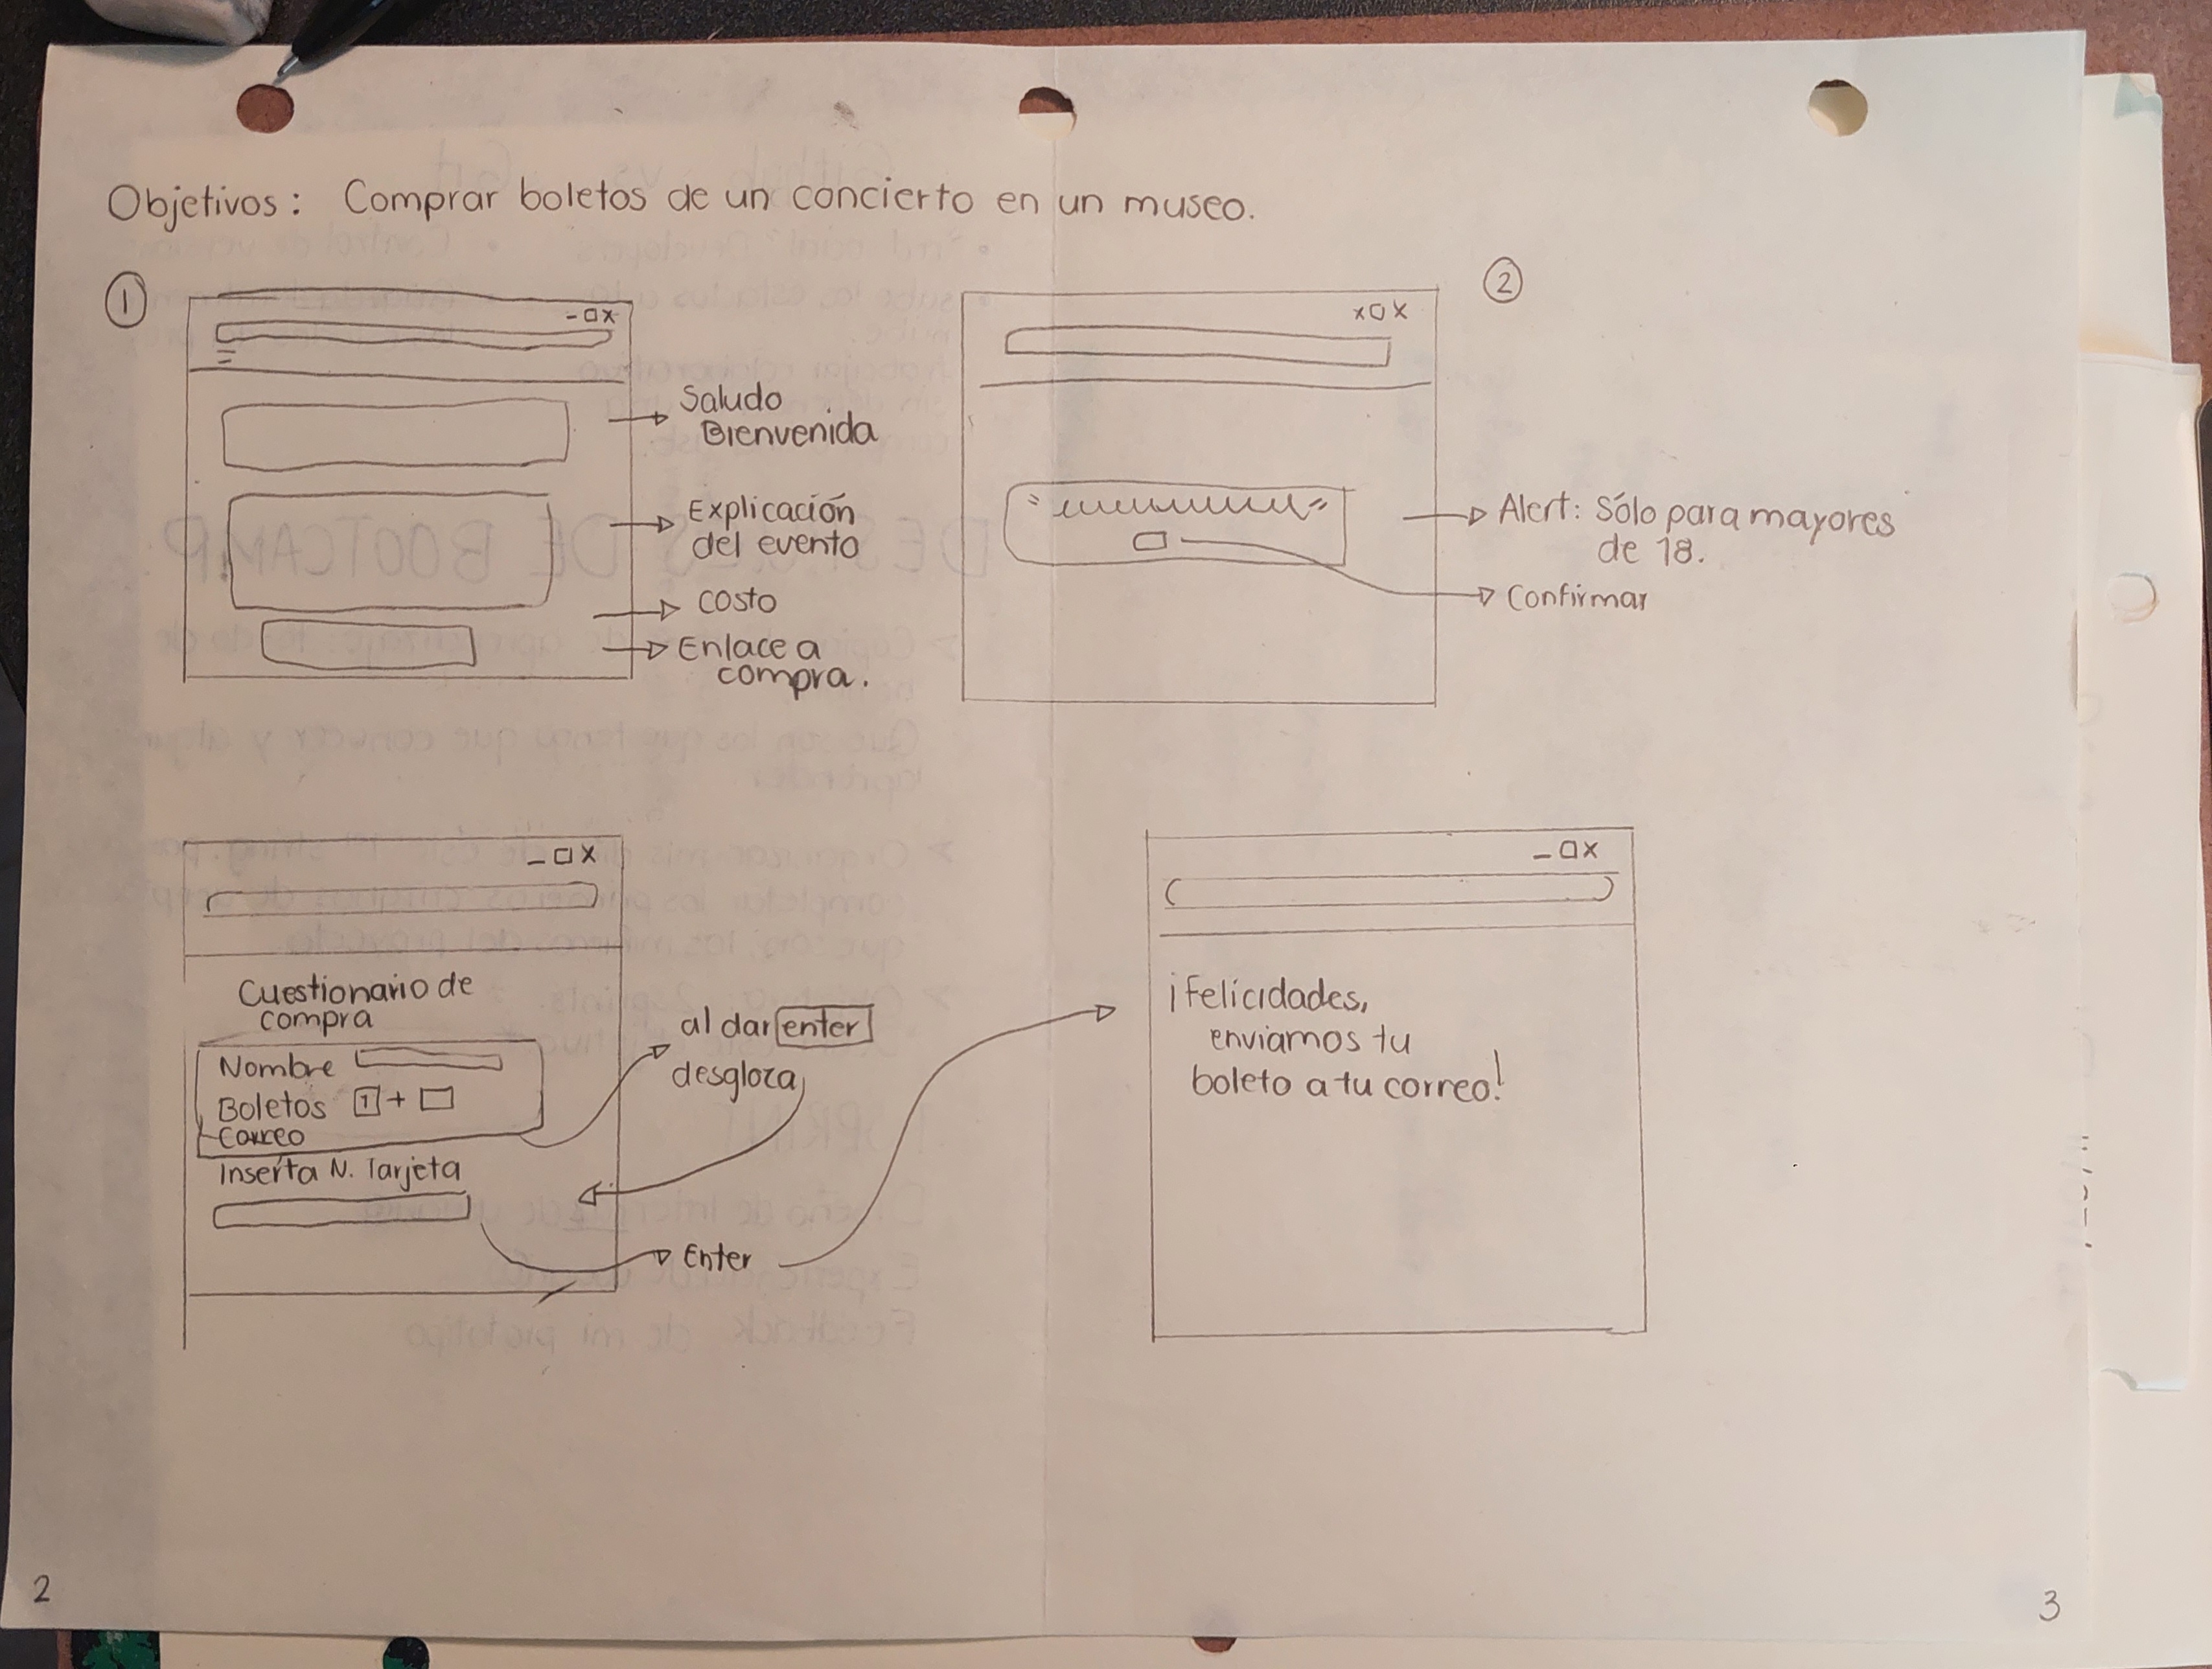 Objetivos: Comprar boletos de un concierto en un museo.
1
- □ x
Saludo
Bienvenida
Explicación
del evento
costo
Enlace a
compra.
2
x □ x
Alert: Sólo para mayores
de 18.
Confirmar
- □ x
Cuestionario de
compra
Nombre
Boletos 1 +
Correo
Inserta N. Tarjeta
al dar enter
desgloza
Enter
- □ x
¡Felicidades,
enviamos tu
boleto a tu correo!
2
3